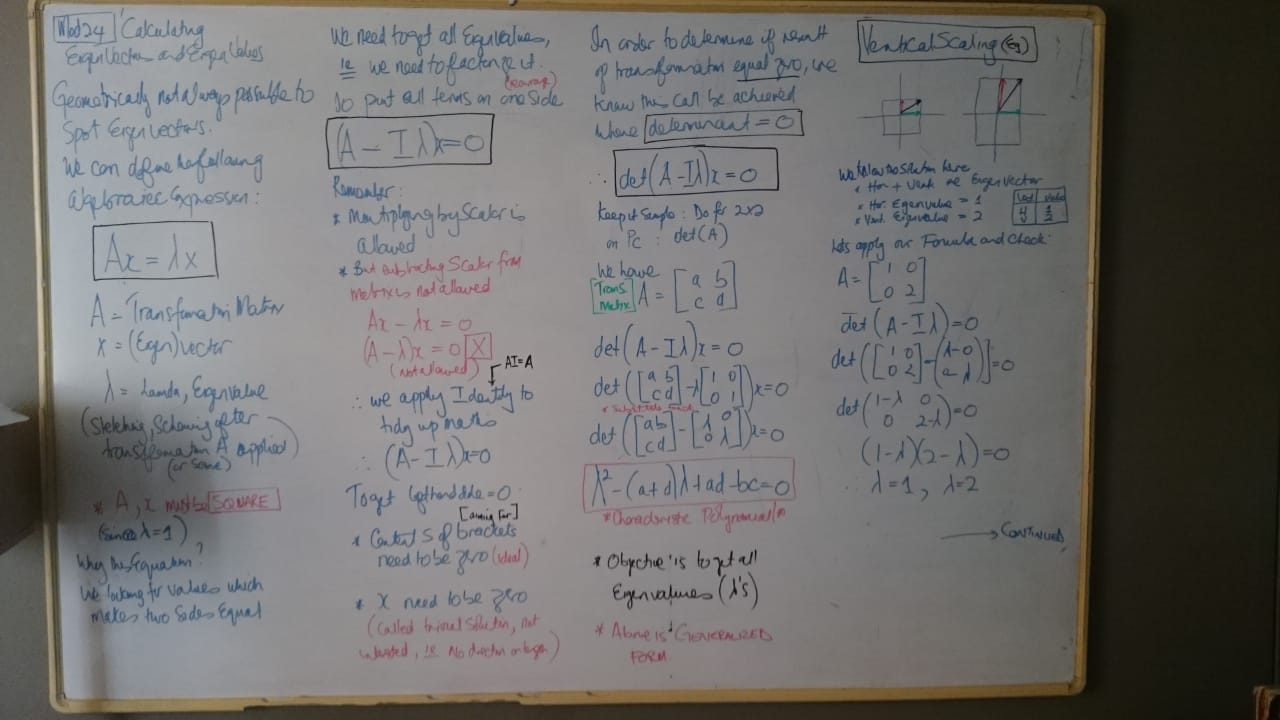 Mod 24 Calculating
EigenVectors and EigenValues
Geometrically not always possible to
Spot Eigenvectors.
We can define the following
Algebraic Expression:
Ax = λx
A = Transformation Matrix
x = (Eigen)vector
λ = Lamda, Eigenvalue
(Stretching, after
transformation A applied)
(or same)
* A, x must be SQUARE
(since λ=1)
Why this Equation?
We looking for values which
makes two sides Equal
We need to get all Eigenvalues,
ie we need to factorize it.
(rearrange)
So put all terms on one side
(A - Iλ)x = 0
Remember:
* Multiplying by Scalar is
allowed
* But subtracting Scalar from
Matrix is not allowed
Ax - λx = 0
(A - λ)x = 0 X
(not allowed)
AI=A
∴ we apply Identity to
tidy up maths
∴ (A - Iλ)x=0
To get left hand side = 0
[aiming for]
* Contents of brackets
need to be zero (ideal)
* X need to be zero
(called trivial solution, not
interested, ie No direction or length)
In order to determine if result
of transformation equal zero, we
know this can be achieved
where determinant = 0
∴ det(A-Iλ)x = 0
Keep it Simple: Do for 2x2
on PC : det(A)
We have
Trans Matrix A = [a b
c d]
det(A - Iλ)x = 0
det([a b
c d] - λ[1 0
0 1])x=0
* Substitute
det([a b
c d] - [λ 0
0 λ])x=0
λ² - (a+d)λ + ad - bc = 0
* Characteristic Polynomial
* Objective is to get all
Eigenvalues (λ's)
* Above is GENERALIZED
FORM.
Vertical Scaling (Eg)
We know the solution here
* Hor + Vert are Eigenvector
* Hor. Eigenvalue = 1
* Vert. Eigenvalue = 2
Lets apply our Formula and check:
A = [1 0
0 2]
det(A - Iλ)=0
det([1 0
0 2] - (λ 0
λ)]=0
det(1-λ 0
0 2-λ)=0
(1-λ)(2-λ)=0
∴ λ=1, λ=2
→ CONTINUED